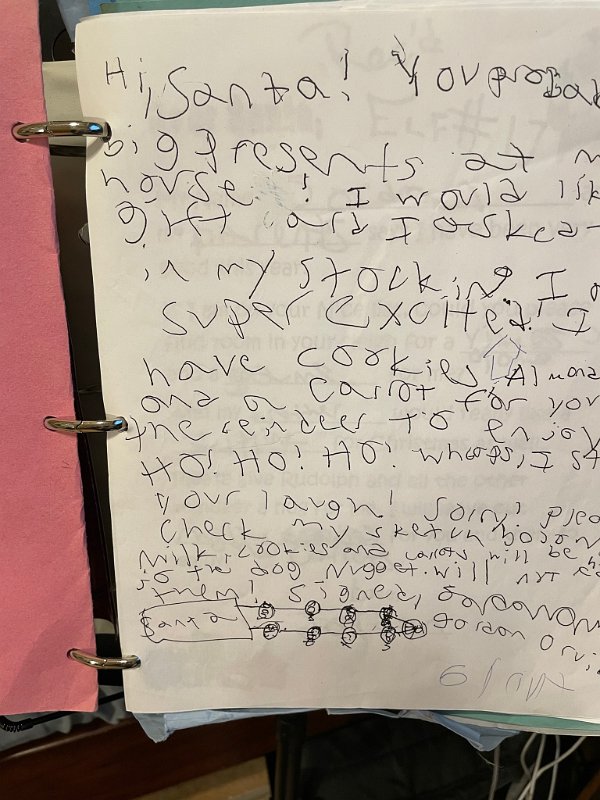 Hi, Santa! You probab
big presents at m
house! I would lik
gift card I asked
in my stocking I a
super excited. I
have cookies, Almond
and a carrot for you
the reindeer to enjoy
HO! HO! HO! whoops, I st
your laugh! Sorry! Plea
check my sketch book
Milk, cookies and carrots will be hi
so the dog Nugget will not ea
them! Signed,
Santa
Gordon